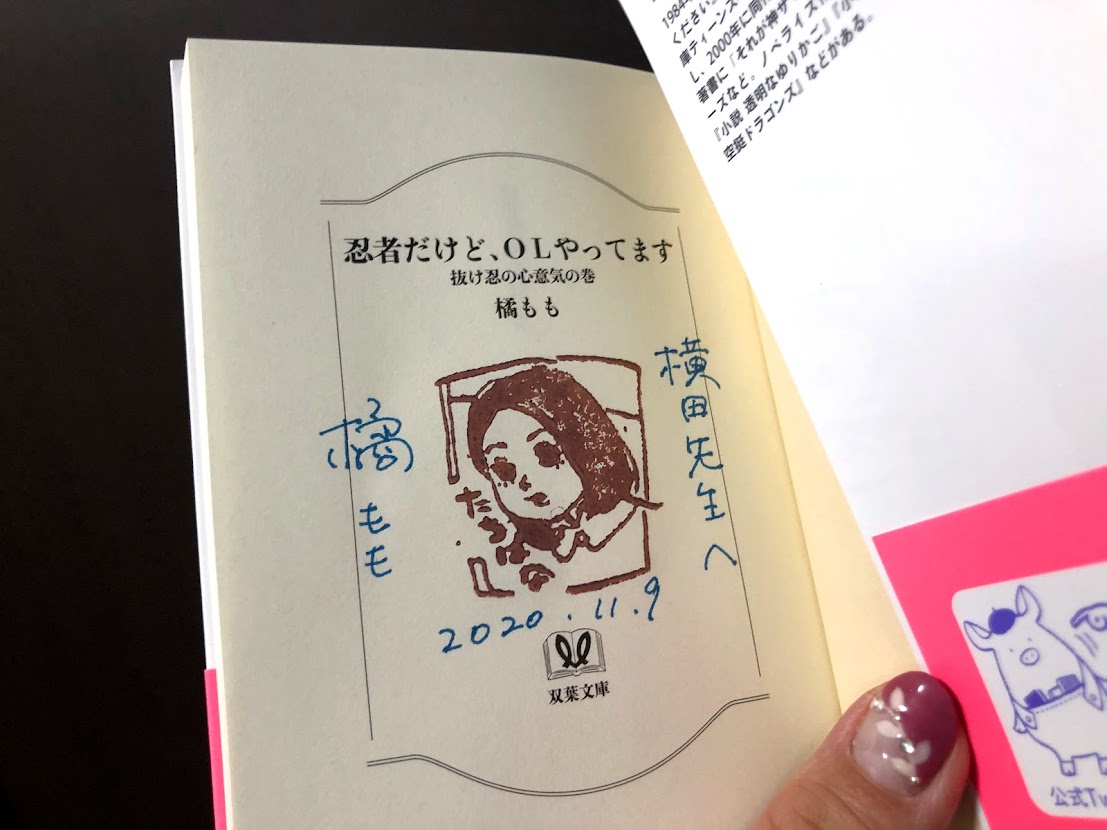 忍者だけど、OLやってます
抜け忍の心意気の巻
橘もも
横田先生へ
橘もも
2020.11.9
双葉文庫
1984
ください。
庫ティーンズ
し、2000年に同作
著書に『それが神ザ
ーズなど。ノベライズ
『小説 透明なゆりかご』『小
空挺ドラゴンズ』などがある。
公式Tw